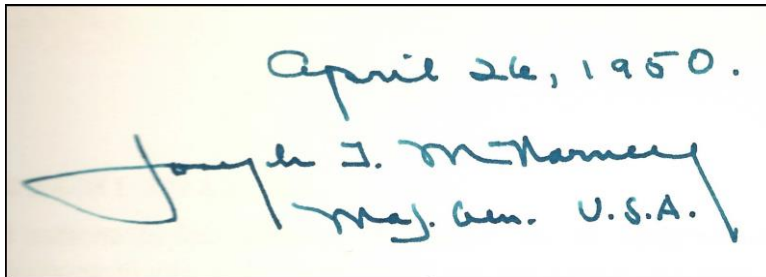 April 26, 1950.
Joseph T. McNarney
Maj. Gen. U.S.A.